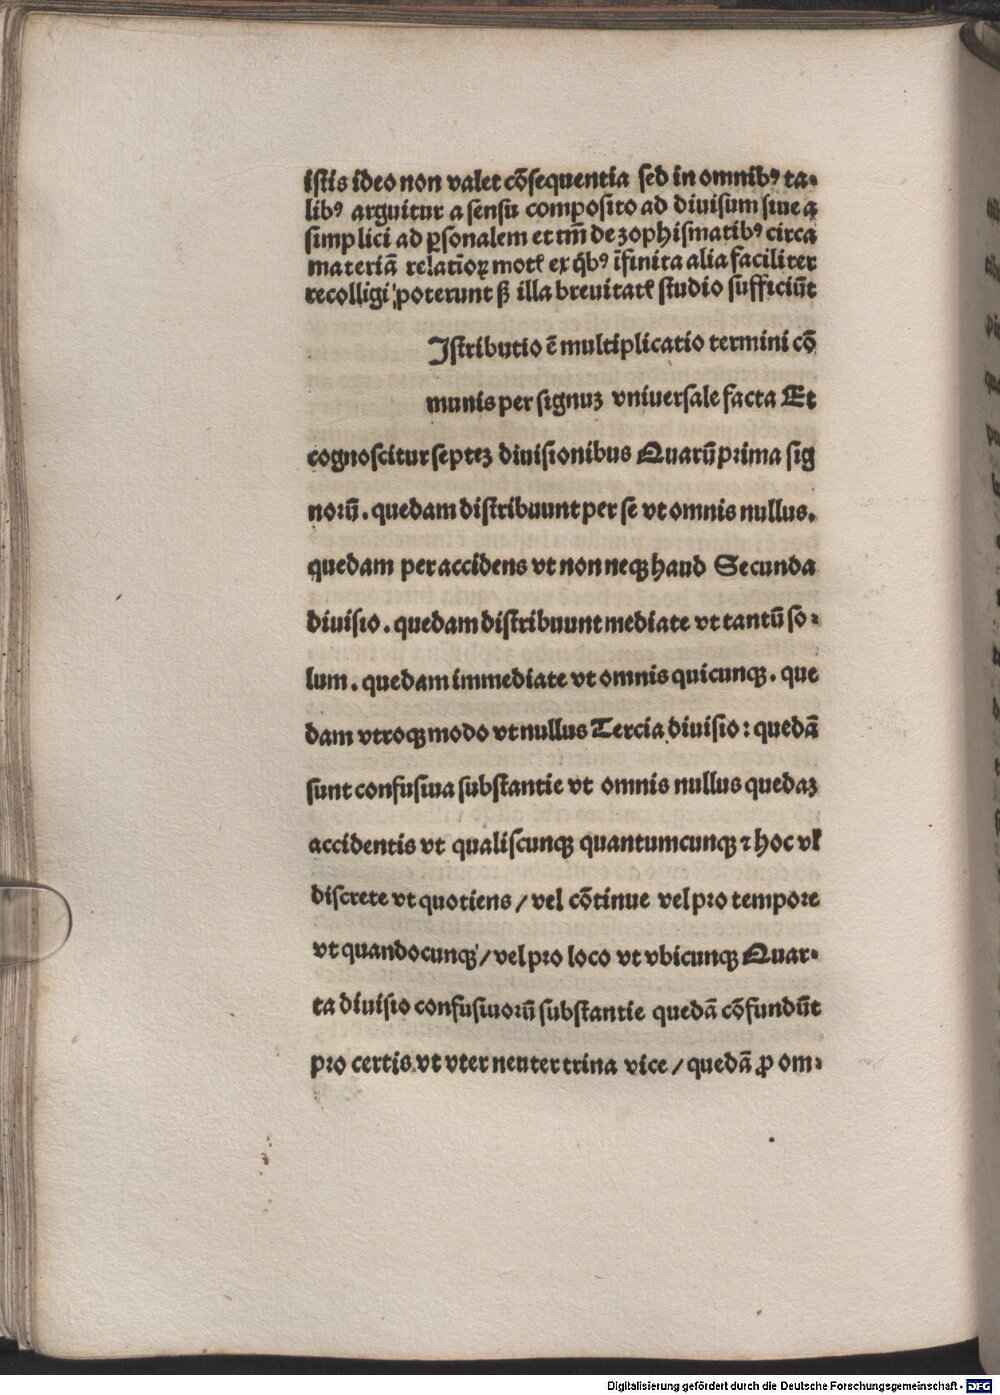 istis ideo non valet cõsequentia sed in omnibꝰ ta-
libꝰ arguitur a sensu composito ad diuisum siue a
simplici ad ꝑsonalem et tm̃ de zophismatibꝰ circa
materiã relatioꝝ mote ex q̃bꝰ ĩfinita alia faciliter
recolligi poterunt ß illa breuitatꝭ studio sufficiũt
Istributio ẽ multiplicatio termini cõ
munis per signuz vniuersale facta Et
cognoscitur septez diuisionibus Quarũ prima sig
norũ. quedam distribuunt per se vt omnis nullus.
quedam per accidens vt non neqꝫ haud Secunda
diuisio. quedam distribuunt mediate vt tantũ so-
lum. quedam immediate vt omnis quicunqꝫ. que
dam vtroqꝫ modo vt nullus Tercia diuisio: quedã
sunt confusiua substantie vt omnis nullus quedaz
accidentis vt qualiscunqꝫ quantumcunqꝫ ⁊ hoc vł
discrete vt quotiens / vel cõtinue vel pro tempore
vt quandocunqꝫ / vel pro loco vt vbicunqꝫ Quar-
ta diuisio confusiuorũ substantie quedã cõfundũt
pro certis vt vter neuter trina vice / quedã ꝓ om-
Digitalisierung gefördert durch die Deutsche Forschungsgemeinschaft - DFG